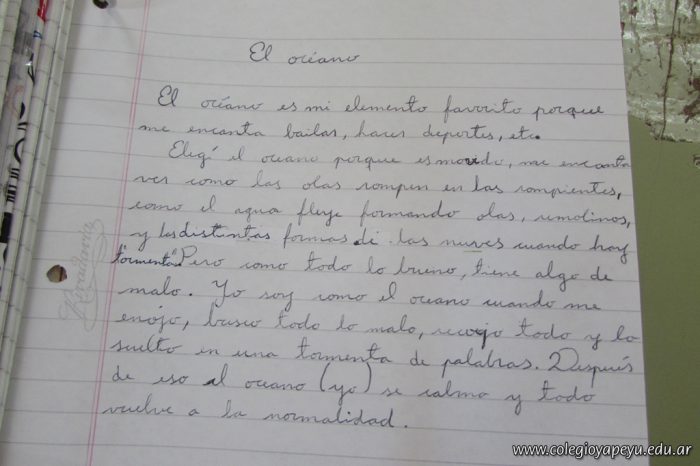 El océano
El océano es mi elemento favorito porque
me encanta bailar, hacer deportes, etc.
Elegí el oceano porque es movido, me encanta
ver como las olas rompen en las rompientes,
como el agua fluye formando olas, remolinos,
y las distintas formas de las nuves cuando hay
"tormenta". Pero como todo lo bueno, tiene algo de
malo. Yo soy como el oceano cuando me
enojo, busco todo lo malo, recojo todo y lo
suelto en una tormenta de palabras. Después
de eso el oceano (yo) se calma y todo
vuelve a la normalidad.
Rivadavia
www.colegioyapeyu.edu.ar